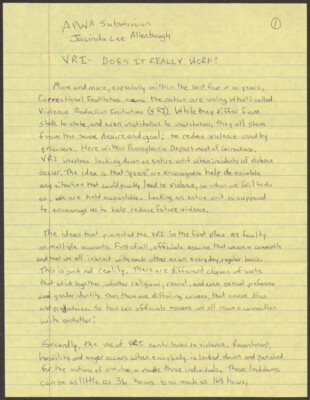 ①
APWA Submission
Jacinda Lee Allenbaugh
VRI - DOES IT REALLY WORK?
More and more, especially within the last five or so years,
Correctional Institutions across the nation are using what's called
Violence Reduction Initiatives (VRI). While they differ from
state to state, and even institution to institution, they all stem
from the same desire and goal; to reduce violence used by
prisoners. Here within Pennsylvania Department of Corrections,
VRI involves locking down an entire unit when incidents of violence
occur. The idea is that "peers" are encouraged to help de-escalate
any situation that could possibly lead to violence, so when we fail to do
so, we are held accountable. Locking an entire unit is supposed
to encourage us to help reduce future violence.
The ideas that promoted the VRI in the first place are faulty
on multiple accounts. First of all, officials assume that we are a community
and that we all interact with each other on an everyday, regular basis.
This is just not reality. There are different cliques of sorts
that stick together, whether religious, racial, and even sexual preference
and gender identity. Then there are differing crimes, that cause bias
and prejudice. So how can officials assume we all have a connection
with eachother?
Secondly, the use of VRI contributes to violence. Resentment,
hostility and anger occurs when everybody is locked down and punished
for the actions of one, two, or maybe three individuals. These lockdowns
can be as little as 36 hours to as much as 168 hours,